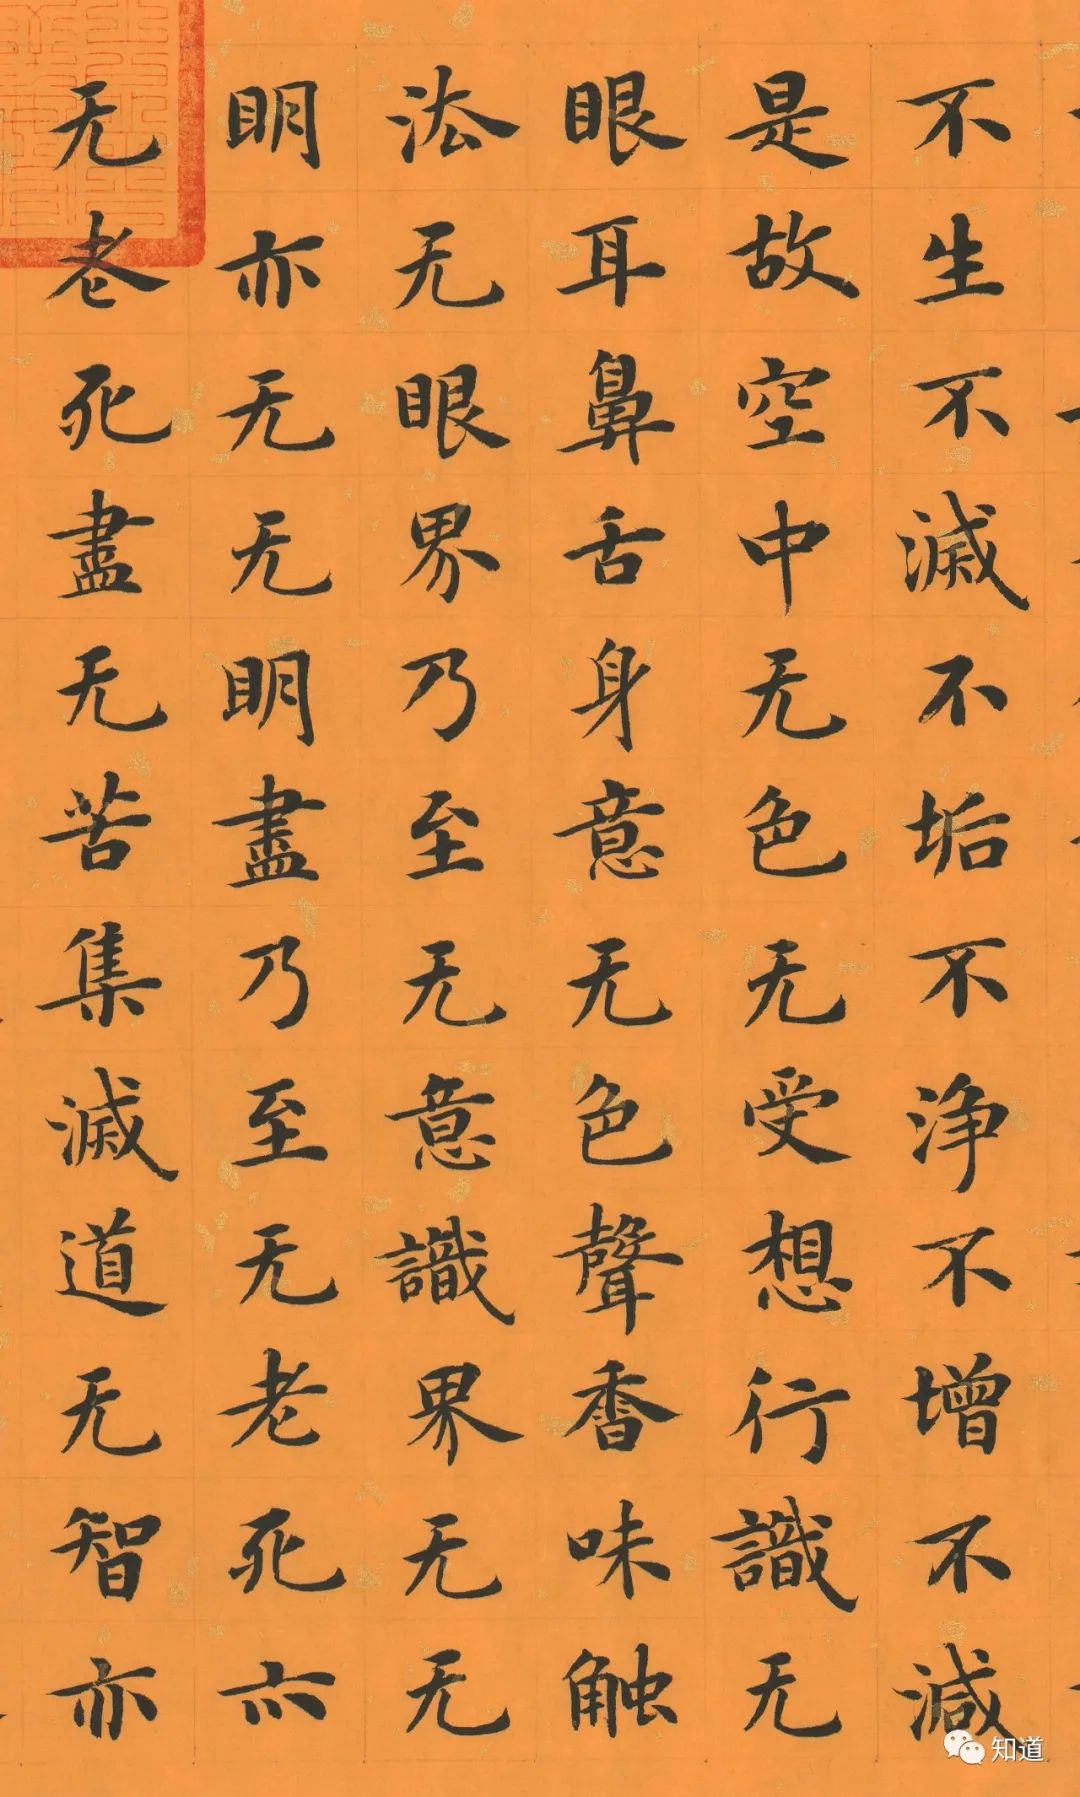 不生不滅不垢不净不增不減
是故空中无色无受想行識无
眼耳鼻舌身意无色聲香味触
法无眼界乃至无意識界无无
明亦无无明盡乃至无老死亦
无老死盡无苦集滅道无智亦
知道